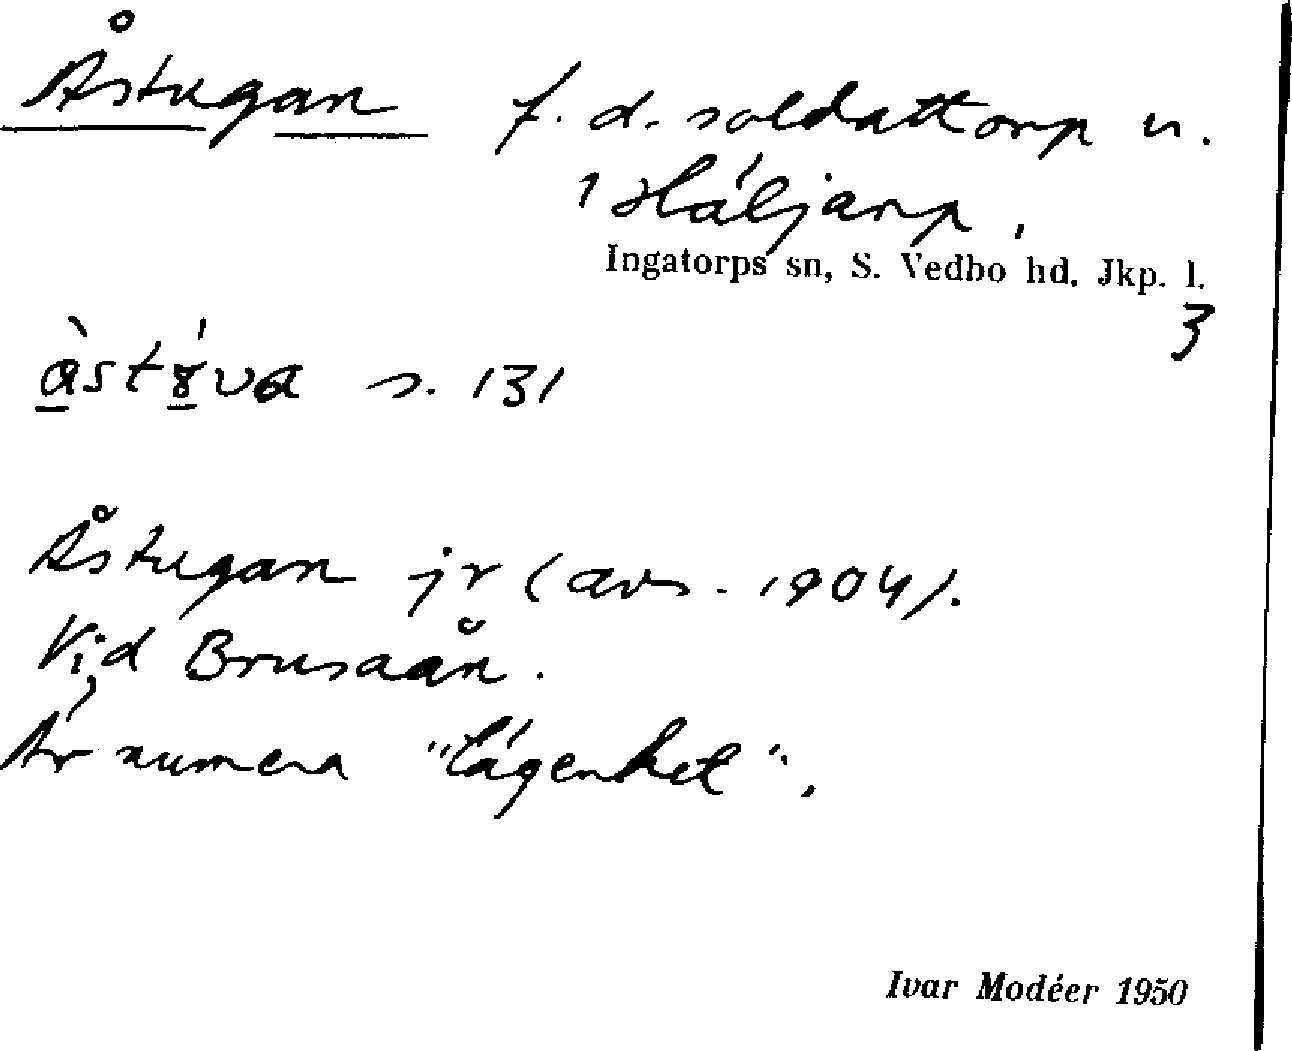 Åstugan f. d. soldattorp u.
1 Häljarp,
Ingatorps sn, S. Vedbo hd. Jkp. l.
3
s. 131
Åstugan jr (avs. 1904).
Vid Brusaån.
Är numera "lägenhet".
Ivar Modéer 1950